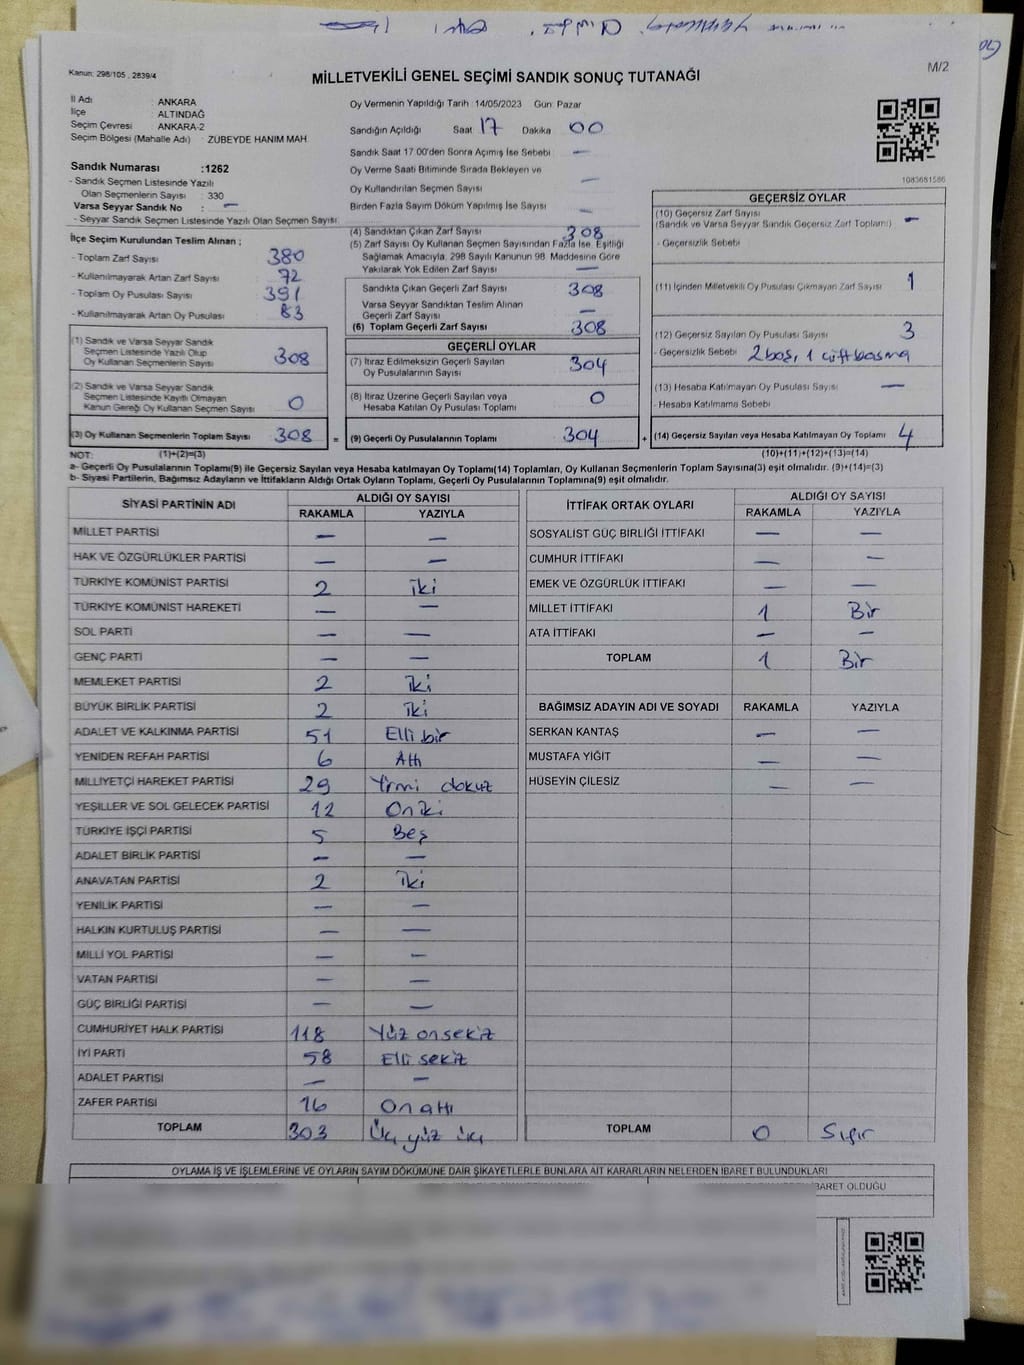 Kanun: 298/105 , 2839/4
MİLLETVEKİLİ GENEL SEÇİMİ SANDIK SONUÇ TUTANAĞI
M/2
İl Adı : ANKARA
İlçe : ALTINDAĞ
Seçim Çevresi : ANKARA-2
Seçim Bölgesi (Mahalle Adı) : ZÜBEYDE HANIM MAH
Sandık Numarası :1262
- Sandık Seçmen Listesinde Yazılı
Olan Seçmenlerin Sayısı : 330
Varsa Seyyar Sandık No : —
- Seyyar Sandık Seçmen Listesinde Yazılı Olan Seçmen Sayısı
Oy Vermenin Yapıldığı Tarih :14/05/2023 Gün: Pazar
Sandığın Açıldığı Saat 17 Dakika 00
Sandık Saat 17:00'den Sonra Açımış İse Sebebi —
Oy Verme Saati Bitiminde Sırada Bekleyen ve
Oy Kullandırılan Seçmen Sayısı —
Birden Fazla Sayım Döküm Yapılmış İse Sayısı —
1083681586
İlçe Seçim Kurulundan Teslim Alınan ;
- Toplam Zarf Sayısı 380
- Kullanılmayarak Artan Zarf Sayısı 72
- Toplam Oy Pusulası Sayısı 391
- Kullanılmayarak Artan Oy Pusulası 83
(1) Sandık ve Varsa Seyyar Sandık
Seçmen Listesinde Yazılı Olup
Oy Kullanan Seçmenlerin Sayısı 308
(2) Sandık ve Varsa Seyyar Sandık
Seçmen Listesinde Kayıtlı Olmayan
Kanun Gereği Oy Kullanan Seçmen Sayısı 0
(3) Oy Kullanan Seçmenlerin Toplam Sayısı 308 =
(4) Sandıktan Çıkan Zarf Sayısı 308
(5) Zarf Sayısı Oy Kullanan Seçmen Sayısından Fazla İse, Eşitliği
Sağlamak Amacıyla, 298 Sayılı Kanunun 98. Maddesine Göre
Yakılarak Yok Edilen Zarf Sayısı —
Sandıkta Çıkan Geçerli Zarf Sayısı 308
Varsa Seyyar Sandıktan Teslim Alınan
Geçerli Zarf Sayısı —
(6) Toplam Geçerli Zarf Sayısı 308
GEÇERLİ OYLAR
(7) İtiraz Edilmeksizin Geçerli Sayılan
Oy Pusulalarının Sayısı 304
(8) İtiraz Üzerine Geçerli Sayılan veya
Hesaba Katılan Oy Pusulası Toplamı 0
(9) Geçerli Oy Pusulalarının Toplamı 304 +
GEÇERSİZ OYLAR
(10) Geçersiz Zarf Sayısı
(Sandık ve Varsa Seyyar Sandık Geçersiz Zarf Toplamı) —
- Geçersizlik Sebebi
(11) İçinden Milletvekili Oy Pusulası Çıkmayan Zarf Sayısı 1
(12) Geçersiz Sayılan Oy Pusulası Sayısı 3
- Geçersizlik Sebebi 2 boş, 1 çift basma
(13) Hesaba Katılmayan Oy Pusulası Sayısı —
- Hesaba Katılmama Sebebi
(14) Geçersiz Sayılan veya Hesaba Katılmayan Oy Toplamı 4
NOT: (1)+(2)=(3) (10)+(11)+(12)+(13)=(14)
a- Geçerli Oy Pusulalarının Toplamı(9) ile Geçersiz Sayılan veya Hesaba katılmayan Oy Toplamı(14) Toplamları, Oy Kullanan Seçmenlerin Toplam Sayısına(3) eşit olmalıdır. (9)+(14)=(3)
b- Siyasi Partilerin, Bağımsız Adayların ve İttifakların Aldığı Ortak Oyların Toplamı, Geçerli Oy Pusulalarının Toplamına(9) eşit olmalıdır.
SİYASİ PARTİNİN ADI ALDIĞI OY SAYISI
RAKAMLA YAZIYLA
MİLLET PARTİSİ — —
HAK VE ÖZGÜRLÜKLER PARTİSİ — —
TÜRKİYE KOMÜNİST PARTİSİ 2 iki
TÜRKİYE KOMÜNİST HAREKETİ — —
SOL PARTİ — —
GENÇ PARTİ — —
MEMLEKET PARTİSİ 2 iki
BÜYÜK BİRLİK PARTİSİ 2 iki
ADALET VE KALKINMA PARTİSİ 51 Elli bir
YENİDEN REFAH PARTİSİ 6 Altı
MİLLİYETÇİ HAREKET PARTİSİ 29 Yirmi dokuz
YEŞİLLER VE SOL GELECEK PARTİSİ 12 On iki
TÜRKİYE İŞÇİ PARTİSİ 5 Beş
ADALET BİRLİK PARTİSİ — —
ANAVATAN PARTİSİ 2 iki
YENİLİK PARTİSİ — —
HALKIN KURTULUŞ PARTİSİ — —
MİLLİ YOL PARTİSİ — —
VATAN PARTİSİ — —
GÜÇ BİRLİĞİ PARTİSİ — —
CUMHURİYET HALK PARTİSİ 118 Yüz on sekiz
İYİ PARTİ 58 Elli sekiz
ADALET PARTİSİ — —
ZAFER PARTİSİ 16 On altı
TOPLAM 303 Üç yüz üç
İTTİFAK ORTAK OYLARI ALDIĞI OY SAYISI
RAKAMLA YAZIYLA
SOSYALİST GÜÇ BİRLİĞİ İTTİFAKI — —
CUMHUR İTTİFAKI — —
EMEK VE ÖZGÜRLÜK İTTİFAKI — —
MİLLET İTTİFAKI 1 Bir
ATA İTTİFAKI — —
TOPLAM 1 Bir
BAĞIMSIZ ADAYIN ADI VE SOYADI RAKAMLA YAZIYLA
SERKAN KANTAŞ — —
MUSTAFA YİĞİT — —
HÜSEYİN ÇİLESİZ — —
TOPLAM 0 Sıfır
OYLAMA İŞ VE İŞLEMLERİNE VE OYLARIN SAYIM DÖKÜMÜNE DAİR ŞİKAYETLERLE BUNLARA AİT KARARLARIN NELERDEN İBARET BULUNDUKLARI
İBARET OLDUĞU